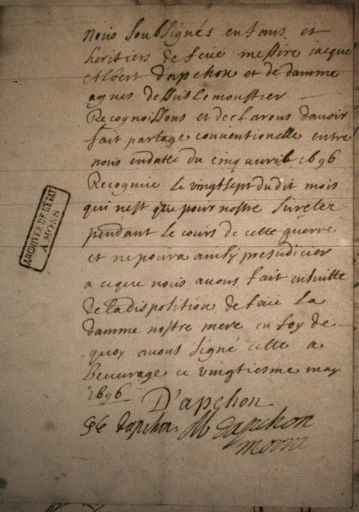 Nous soubsignés enfans et
heritiers de feue messire Jacque
Albert Dapchon et de damme
agnes de
Recognoissons et declarons davoir
fait partage conventionelle entre
nous endatte du cinq avril 1696
Recognue le vingt sept dudit mois
qui nest que pour nostre
pendant le cours de cette guerre
et ne poura ainsy prejudicier
a ce que nous avons fait ensuitte
de la disposition de feue la
damme nostre mere en foy de
quoy avons signé cette a
ce vingtiesme may
1696
D'apchon
dapchon dapchon
ARCHIVES DE L'ETAT
A MONS